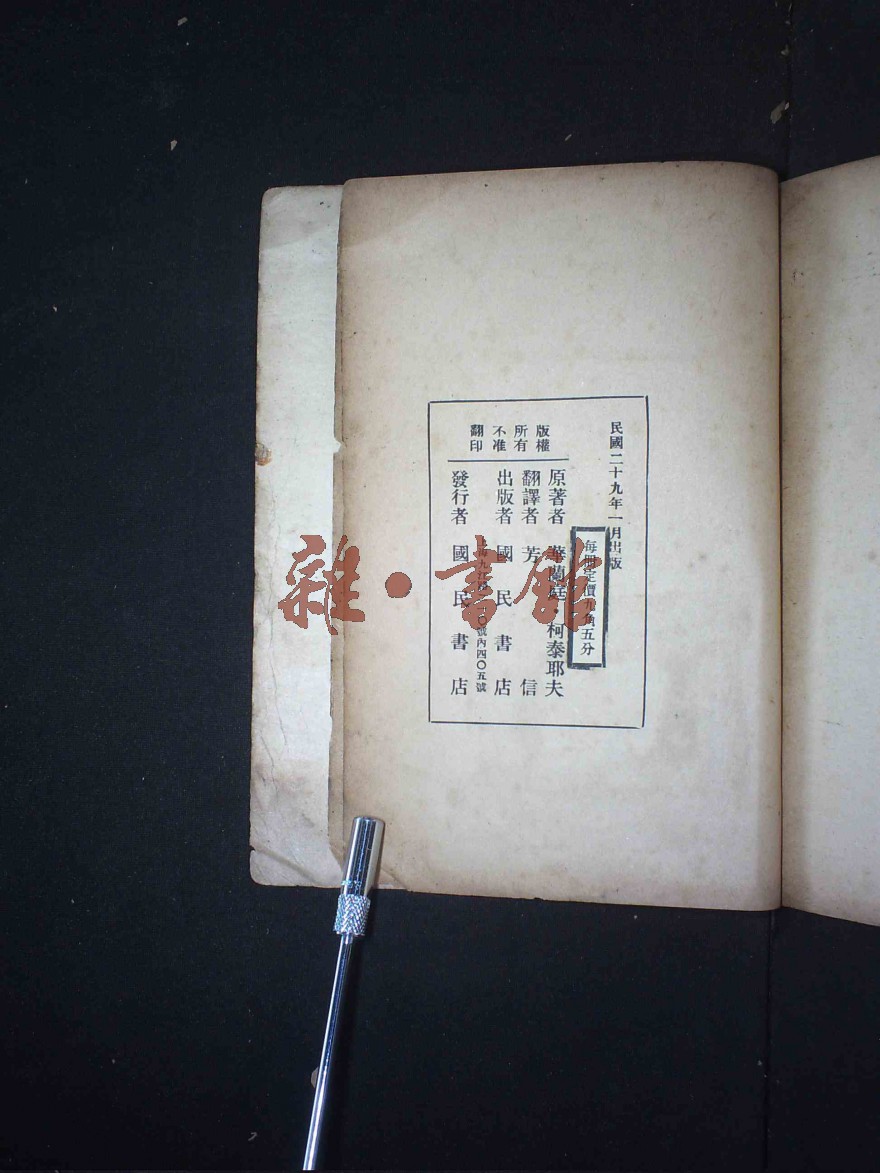 民國二十九年一月出版
每冊定價九角五分
版權所有
不准翻印
原著者 華蘭庭・柯泰耶夫
翻譯者 芳信
出版者 國民書店
上海九江路 〇號內四〇五號
發行者 國民書店
雜・書館